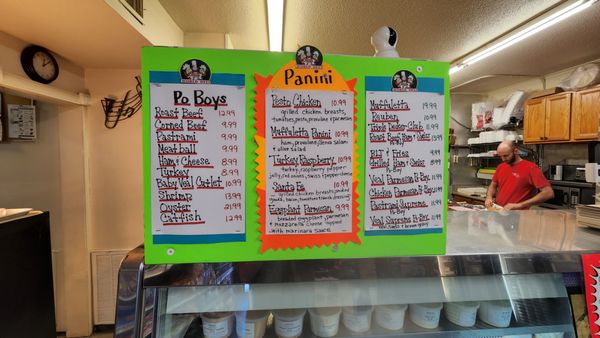 Po Boys
Roast Beef 12.99
Corned Beef 9.99
Pastrami 9.99
Meat ball 9.99
Ham & Cheese 8.99
Turkey 8.99
Baby Veal Cutlet 10.99
Shrimp 13.99
Oyster 21.99
Catfish 12.99
Panini
Pesto Chicken 10.99
grilled chicken breasts,
tomatoes, pesto, provolone & parmesan
Muffuletta Panini 10.99
Ham, provolone, Genoa Salami
& olive salad
Turkey Raspberry 10.99
turkey, raspberry pepper
jelly, red onions, swiss & pepper cheese
Santa Fe 10.99
grilled chicken breasts,
Eggplant Parmesan 9.99
breaded eggplant, parmesan
& mozzarella cheese topped
with marinara sauce
Muffuletta 19.99
Reuben
Roast Beef, Ham & Swiss
BLT & Fries 9.99
Grilled Ham & Swiss
Po-Boy
Veal Parmesan Po-Boy
Chicken Parmesan Po-Boy
Pastrami Supreme
Po-Boy
Veal Supreme Po-Boy